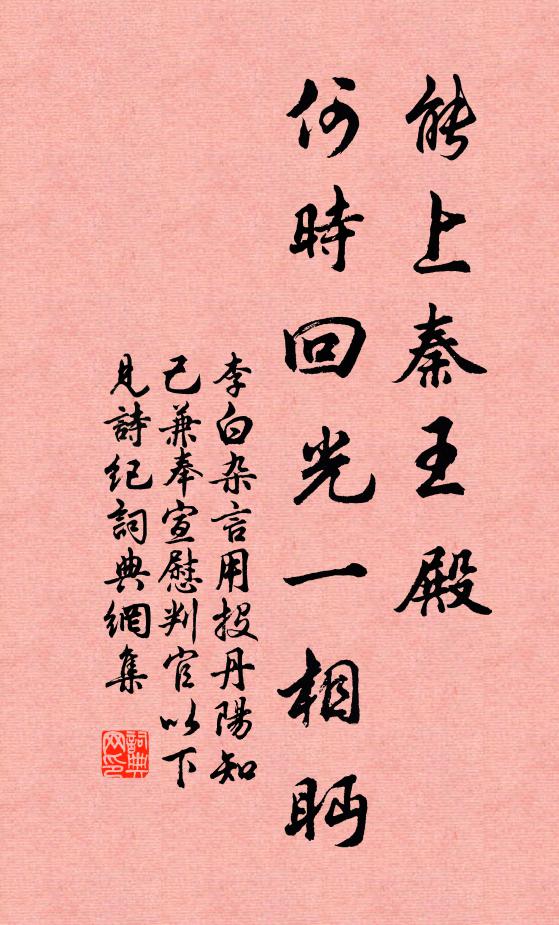 能上秦王殿
何時回光一相眄
李白杂言用投丹陽知
己兼奉宣慰判官以下
見詩紀詞典網集
詞典
网印